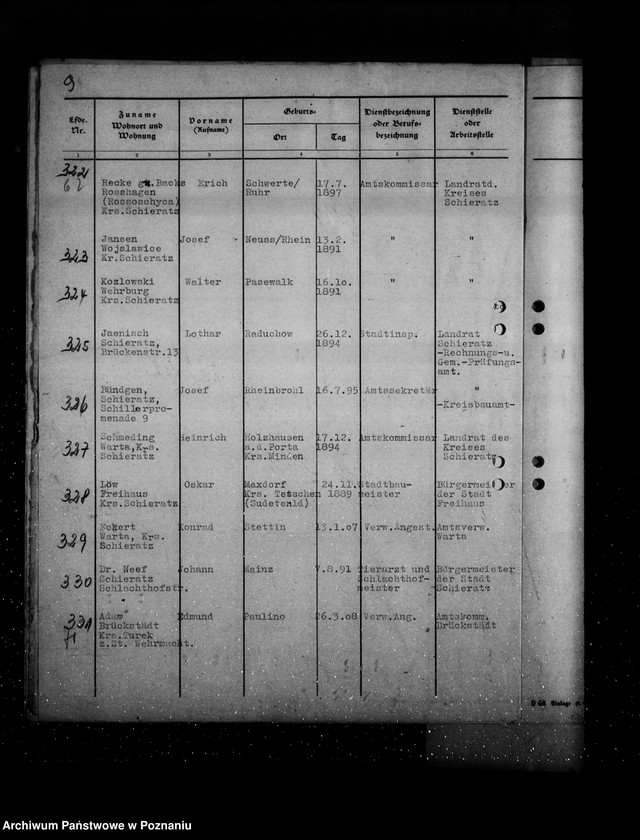 9
Lfde. Nr. | Zuname Wohnort und Wohnung | Vorname (Rufname) | Geburts- Ort | Tag | Dienstbezeichnung oder Berufsbezeichnung | Dienststelle oder Arbeitsstelle
1 2 3 4 5 6
322
62
Recke Backs Erich Schwerte/ 17.7. Amtskommissar Landratd.
Rosshagen Ruhr 1897 Kreises
(Rossoschyca) Schieratz
Krs.Schieratz
323
Jansen Josef Neuss/Rhein 13.2. " "
Wojslawice 1891
Kr.Schieratz
324
Kozlowski Walter Pasewalk 16.10. " "
Wehrburg 1891
Krs.Schieratz
325
Jaenisch Lothar Raduchow 26.12. Stadtinsp. Landrat
Schieratz, 1894 Schieratz
Brückenstr.13 -Rechnungs-u.
Gem.-Prüfungs-
amt.
326
Bündgen, Josef Rheinbrohl 16.7.95 Amtssekretär "
Schieratz,
Schillerpro- -Kreisbauamt-
menade 9
327
Schmeding Heinrich Holzhausen 17.12. Amtskommissar Landrat des
Warta,Krs. a.d.Porta 1894 Kreises
Schieratz Krs.Minden Schieratz
328
Löw Oskar Maxdorf 24.11. Stadtbau- Bürgermeister
Freihaus Krs. Tetschen 1889 meister der Stadt
Krs.Schieratz (Sudetenld) Freihaus
329
Eckert Konrad Stettin 13.1.07 Verw.Angest. Amtsverw.
Warta, Krs. Warta
Schieratz
330
Dr. Neef Johann Mainz 7.8.91 Tierarzt und Bürgermeister
Schieratz Schlachthof- der Stadt
Schlachthofstr. meister Schieratz
331
71
Adam Edmund Paulino 26.3.08 Verw.Ang. Amtskomm.
Brückstädt Brückstädt
Krs.Turek
z.St. Wehrmacht.
D 68 Einlage
Archiwum Państwowe w Poznaniu